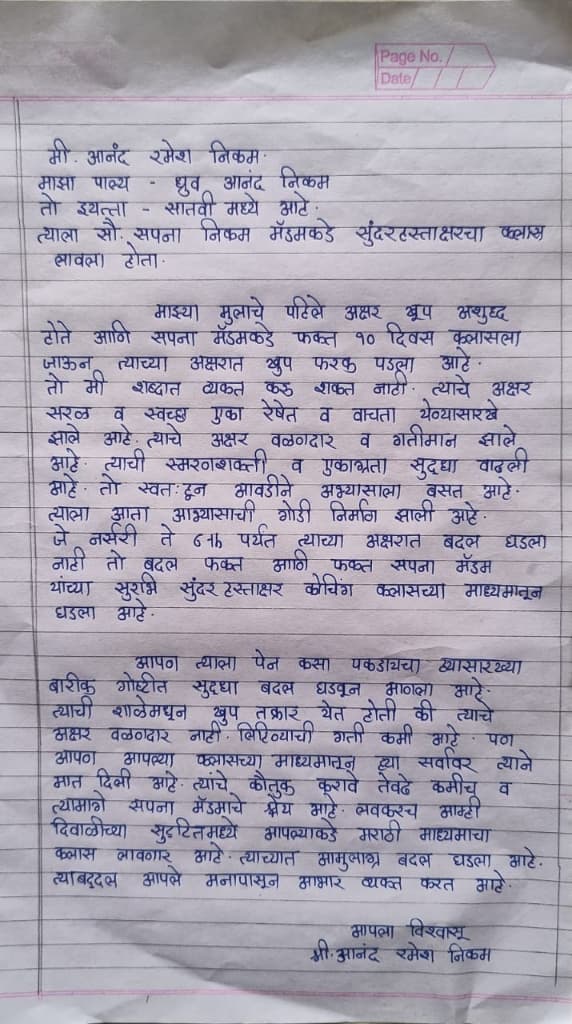 Page No.
Date
मी. आनंद रमेश निकम.
माझा पाल्य - ध्रुव आनंद निकम
तो इयत्ता - सातवी मध्ये आहे.
त्याला सौ. सपना निकम मॅडमकडे सुंदरहस्ताक्षरचा क्लास
लावला होता.
माझ्या मुलाचे पहिले अक्षर खूप अशुद्ध
होते आणि सपना मॅडमकडे फक्त १० दिवस क्लासला
जाऊन त्याच्या अक्षरात खुप फरक पडला आहे.
तो मी शब्दात व्यक्त करु शकत नाही. त्याचे अक्षर
सरळ व स्वच्छ एका रेषेत व वाचता येण्यासारखे
झाले आहे. त्याचे अक्षर वळणदार व गतीमान झाले
आहे. त्याची स्मरणशक्ती व एकाग्रता सुद्धा वाढली
आहे. तो स्वतःहून आवडीने अभ्यासाला बसत आहे.
त्याला आता अभ्यासाची गोडी निर्माण झाली आहे.
जे नर्सरी ते 6th पर्यंत त्याच्या अक्षरात बदल घडला
नाही तो बदल फक्त आणि फक्त सपना मॅडम
यांच्या सुरभि सुंदर हस्ताक्षर कोचिंग क्लासच्या माध्यमातून
घडला आहे.
आपण त्याला पेन कसा पकडायचा ह्यासारख्या
बारीक गोष्टीत सुद्धा बदल घडवून आणला आहे.
त्याची शाळेमधून खुप तक्रार येत होती की त्याचे
अक्षर वळणदार नाही. लिहिण्याची गती कमी आहे. पण
आपण आपल्या क्लासच्या माध्यमातून ह्या सर्वांवर त्याने
मात दिली आहे. त्यांचे कौतुक करावे तेवढे कमीच व
त्यामागे सपना मॅडमाचे श्रेय आहे. लवकरच आम्ही
दिवाळीच्या सुट्टीतमध्ये आपल्याकडे मराठी माध्यमाचा
क्लास लावणार आहे. त्याच्यात आमुलाग्र बदल घडला आहे.
त्याबद्दल आपले मनापासून आभार व्यक्त करत आहे.
आपला विश्वासू
श्री. आनंद रमेश निकम